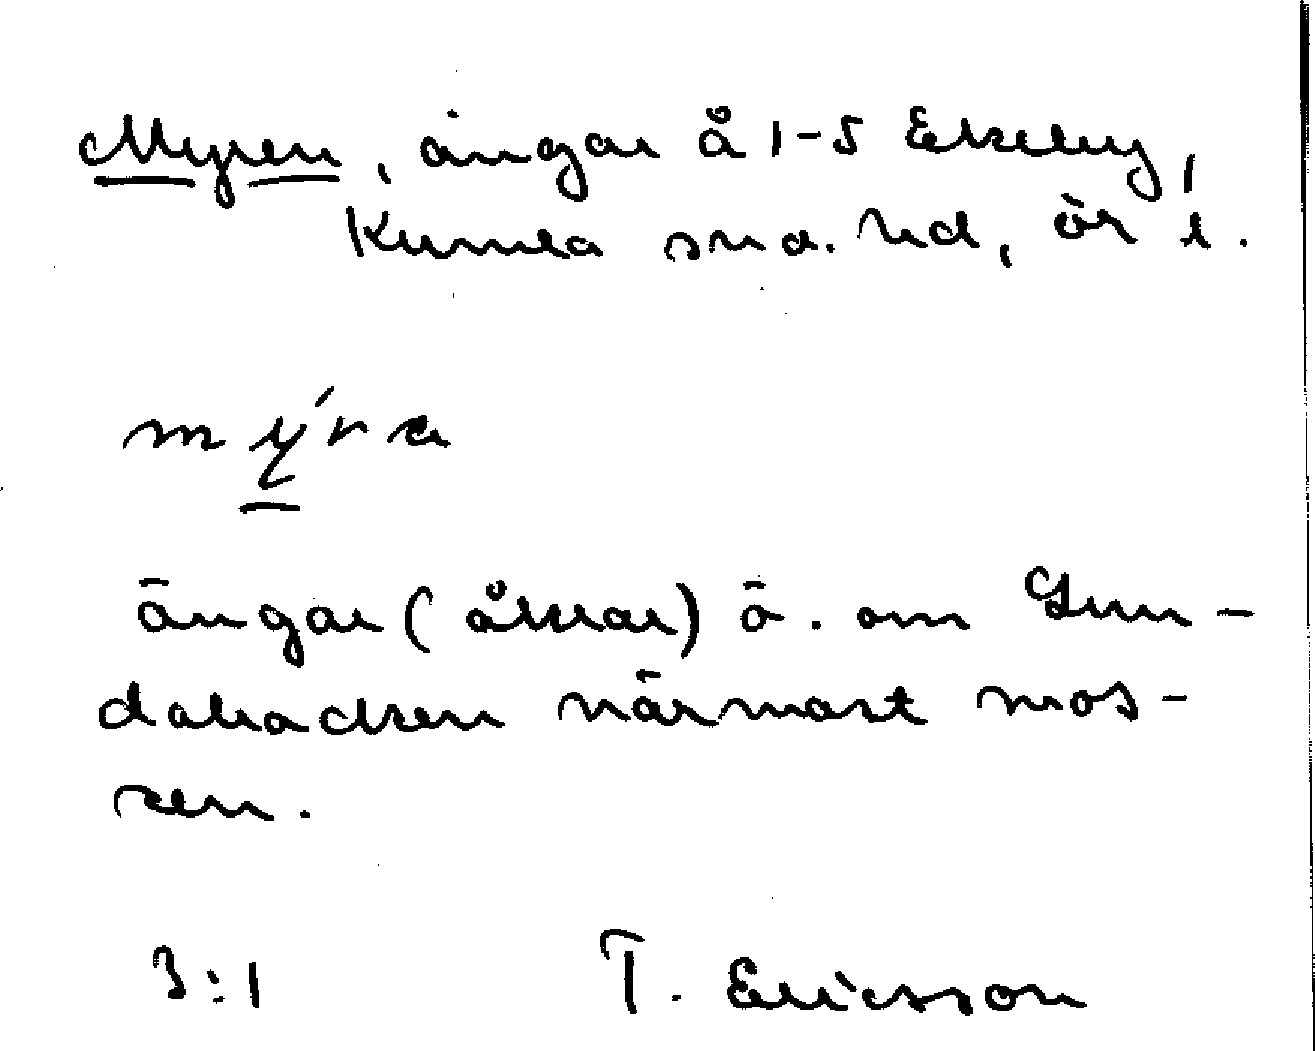 Myren, ängar å 1-5 Ekeby,
Kumla sn o. hd, ör l.
mýra
ängar (åkrar) ö. om Gun-
dabacken närmast mos-
sen.
3:1 T. Ericsson